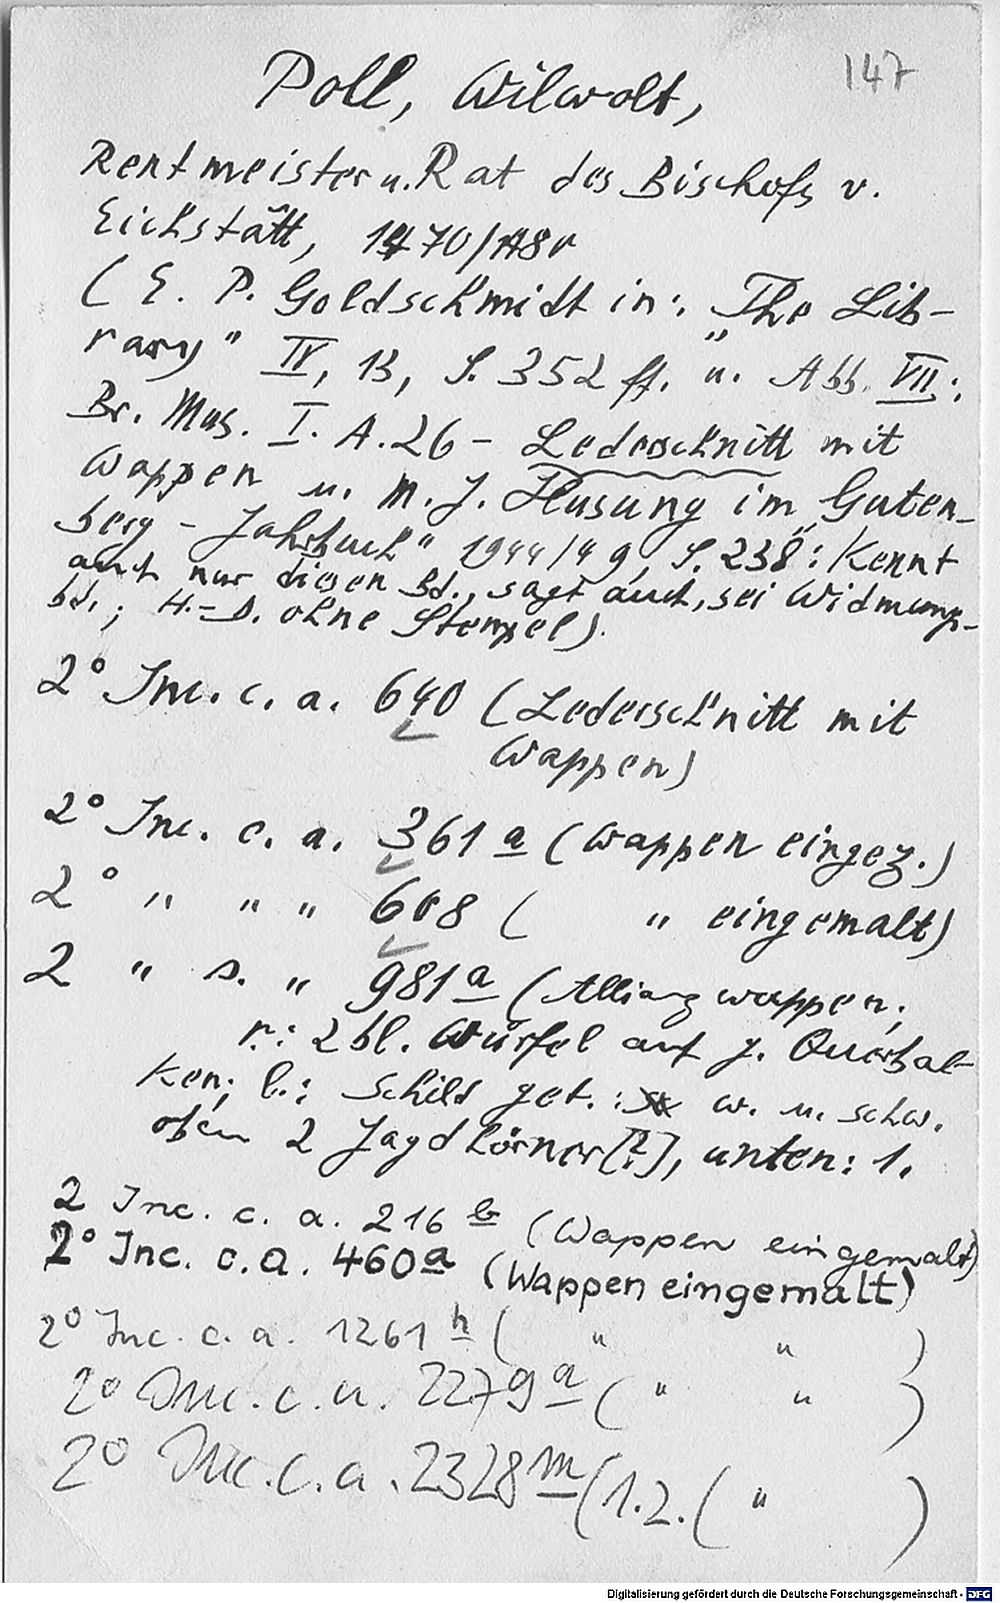 147
Poll, Wilwolt,
Rentmeister u. Rat des Bischofs v.
Eichstätt, 1470/1480
(E. P. Goldschmidt in: „The Lib-
rary" IV, 13, S. 352 ff. u. Abb. VII;
Br. Mus. I. A. 26 - Lederschnitt mit
Wappen u. M. J. Husung im „Guten-
berg-Jahrbuch" 1944/49, S. 238: Kennt
auch nur diesen Bd., sagt auch, sei Widmungs-
bd.; H.-D. ohne Stempel).
2° Inc. c. a. 640 (Lederschnitt mit
Wappen)
2° Inc. c. a. 361 a (Wappen eingez.)
2° " " " 608 ( " eingemalt)
2 " s. " 981 a (Allianzwappen;
r.: 2 bl. Würfel auf g. Querbal-
ken; l.: Schild get.: w. u. schw.
oben 2 Jagdhörner[?], unten: 1.
2 Inc. c. a. 216 b (Wappen eingemalt)
2° Inc. c. a. 460 a (Wappen eingemalt)
2° Inc. c. a. 1261 h ( " " )
2° Inc. c. a. 2279 a ( " " )
2° Inc. c. a. 2328 m (1.2. ( " )
Digitalisierung gefördert durch die Deutsche Forschungsgemeinschaft - DFG